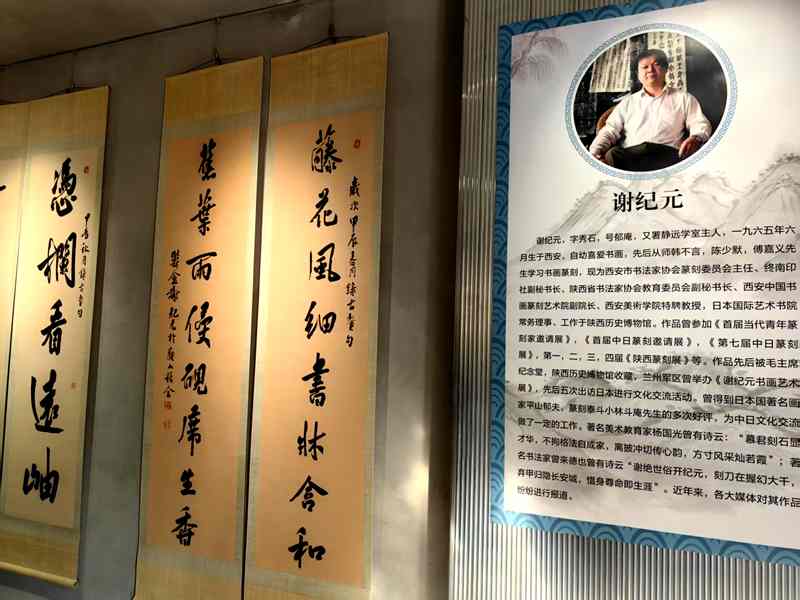 藤花風細書牀含和
歲次甲辰春月錄古賢句
蕉葉雨侵硯席生香
憑欄看遠岫
谢纪元
谢纪元，字秀石，号郁庵，又署静远学室主人，一九六五年六
月生于西安，自幼喜爱书画，先后从师韩不言，陈少默，傅嘉义先
生学习书画篆刻，现为西安市书法家协会篆刻委员会主任、终南印
社副秘书长、陕西省书法家协会教育委员会副秘书长、西安中国书
画篆刻艺术院副院长、西安美术学院特聘教授，日本国际艺术书院
常务理事、工作于陕西历史博物馆。作品曾参加《首届当代青年篆
刻家邀请展》，《首届中日篆刻邀请展》，《第七届中日篆刻
展》，第一，二，三，四届《陕西篆刻展》等，作品先后被毛主席
纪念堂，陕西历史博物馆收藏，兰州军区曾举办《谢纪元书画艺术
展》，先后五次出访日本进行文化交流活动。曾得到日本国著名画
家平山郁夫。篆刻泰斗小林斗庵先生的多次好评，为中日文化交流
做了一定的工作。著名美术教育家杨国光曾有诗云：“慕君刻石显
才华，不拘格法自成家，离披冲切传心韵，方寸风采灿若霞”；著
名书法家曾来德也曾有诗云“谢绝世俗开纪元，刻刀在握幻大千，
弃甲归隐长安城，惜身尊命即生涯”。近年来，各大媒体对其作品
纷纷进行报道。